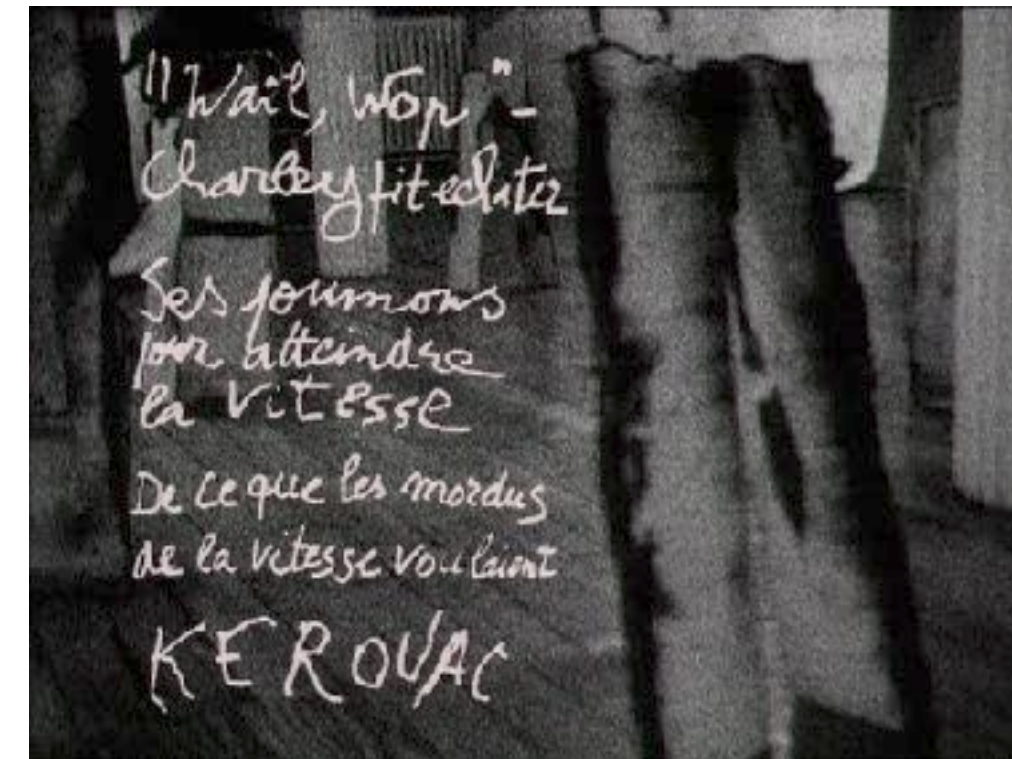 "Wail, Wop" –
Charley fit eclater
Ses poumons
pour atteindre
la Vitesse
De ce que les mordus
de la vitesse voulaient
KEROUAC